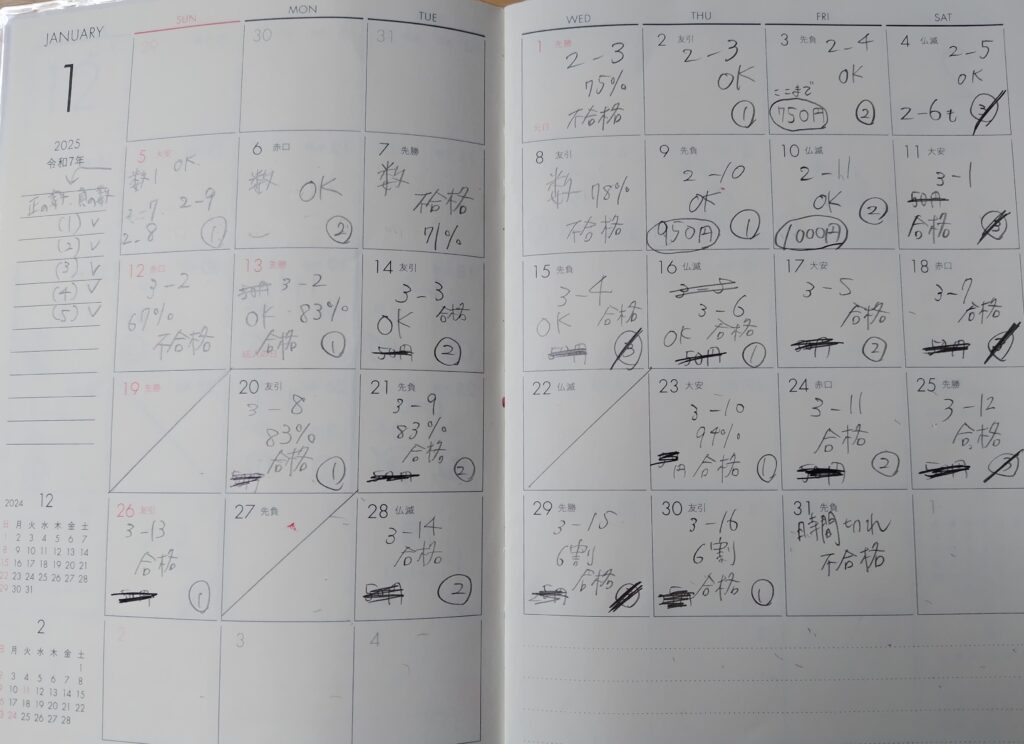 JANUARY
1
2025
令和7年
正の数 負の数
(1) ✓
(2) ✓
(3) ✓
(4) ✓
(5) ✓
SUN MON TUE WED THU FRI SAT
29
30
31
1 先勝
2-3
75%
不合格
元日
2 友引
2-3
OK
①
3 先負
2-4
OK
ここまで
750円
②
4 仏滅
2-5
OK
2-6も
③
5 大安
OK
数1
2-7 2-9
2-8
①
6 赤口
数
OK
②
7 先勝
数
不合格
71%
8 友引
数 78%
不合格
9 先負
2-10
OK
950円
①
10 仏滅
2-11
OK
②
1000円
11 大安
3-1
50円
合格
③
12 赤口
3-2
67%
不合格
13 先勝
50円 3-2
OK 83%
合格 ①
14 友引
3-3
OK 合格
50円 ②
15 先負
3-4
OK 合格
50円 ③
16 仏滅
3-5
3-6
OK 合格
50円 ①
17 大安
3-5
合格
②
18 赤口
3-7
合格
19 先勝
20 友引
3-8
83%
合格
①
21 先負
3-9
83%
合格
②
22 仏滅
23 大安
3-10
94%
円 合格 ①
24 赤口
3-11
合格
②
25 先勝
3-12
合格
26 友引
3-13
合格
①
27 先負
28 仏滅
3-14
合格
②
29 先勝
3-15
6割
合格
30 友引
3-16
6割
合格 ①
31 先負
時間切れ
不合格
1
2
3
4
2024 12
日 月 火 水 木 金 土
1 2 3 4 5 6 7
8 9 10 11 12 13 14
15 16 17 18 19 20 21
22 23 24 25 26 27 28
29 30 31
2
日 月 火 水 木 金 土
1
2 3 4 5 6 7 8
9 10 11 12 13 14 15
16 17 18 19 20 21 22
23 24 25 26 27 28